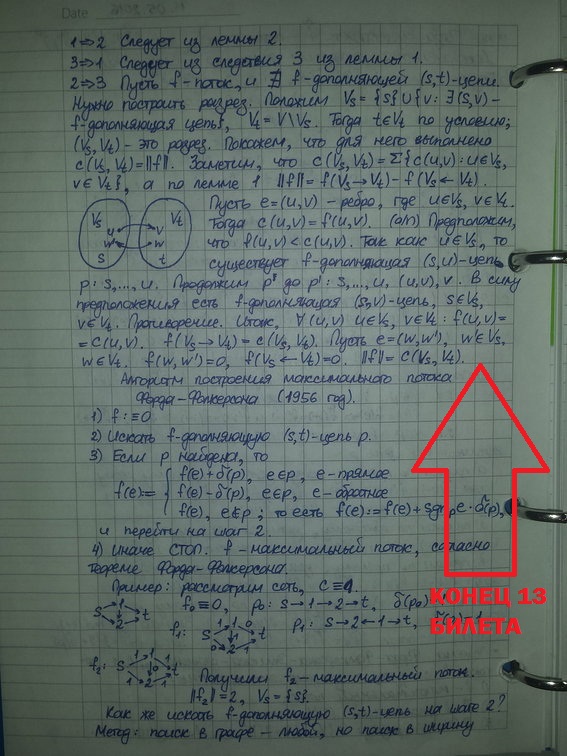 Date
1⇒2 Следует из леммы 2.
3⇒1 Следует из следствия 3 из леммы 1.
2⇒3 Пусть f-поток, и ∄ f-дополняющей (s,t)-цепи.
Нужно построить разрез. Положим Vs = {s}∪{v: ∃(s,v)-
f-дополняющая цепь}, Vt = V\Vs. Тогда t∈Vt по условию;
(Vs,Vt) - это разрез. Покажем, что для него выполнено
c(Vs,Vt)=‖f‖. Заметим, что c(Vs,Vt)=Σ{c(u,v): u∈Vs,
v∈Vt}, а по лемме 1 ‖f‖= f(Vs→Vt) - f(Vs←Vt).
Пусть e=(u,v) - ребро, где u∈Vs, v∈Vt.
Тогда c(u,v)=f(u,v). (о/п) Предположим,
что f(u,v)<c(u,v). Так как u∈Vs, то
существует f-дополняющая (s,u)-цепь
Vs Vt
u v
w' w
s t
p: s,...,u. Продолжим p до p': s,...,u,(u,v),v. В силу
предположения есть f-дополняющая (s,v)-цепь, s∈Vs,
v∈Vt. Противоречие. Итак, ∀(u,v) u∈Vs, v∈Vt: f(u,v)=
=c(u,v). f(Vs→Vt)=c(Vs,Vt). Пусть e=(w,w'), w'∈Vs,
w∈Vt. f(w,w')=0, f(Vs←Vt)=0. ‖f‖=c(Vs,Vt).
Алгоритм построения максимального потока
Форда-Фалкерсона (1956 год).
1) f:≡0
2) Искать f-дополняющую (s,t)-цепь p.
3) Если p найдена, то
f(e)+δ(p), e∈p, e-прямое
f(e):= { f(e)-δ(p), e∈p, e-обратное
f(e), e∉p; то есть f(e):=f(e)+sgnₚe·δ(p),
и перейти на шаг 2.
4) Иначе СТОП. f-максимальный поток, согласно
теореме Форда-Фалкерсона.
Пример: рассмотрим сеть, c≡1.
f₀≡0, p₀: s→1→2→t, δ(p₀)
f₁: p₁: s→2←1→t,
f₂: Получили f₂-максимальный поток.
‖f₂‖=2, Vs={s}.
Как же искать f-дополняющую (s,t)-цепь на шаге 2?
Метод: поиск в графе - любой, но поиск в ширину
КОНЕЦ 13
БИЛЕТА